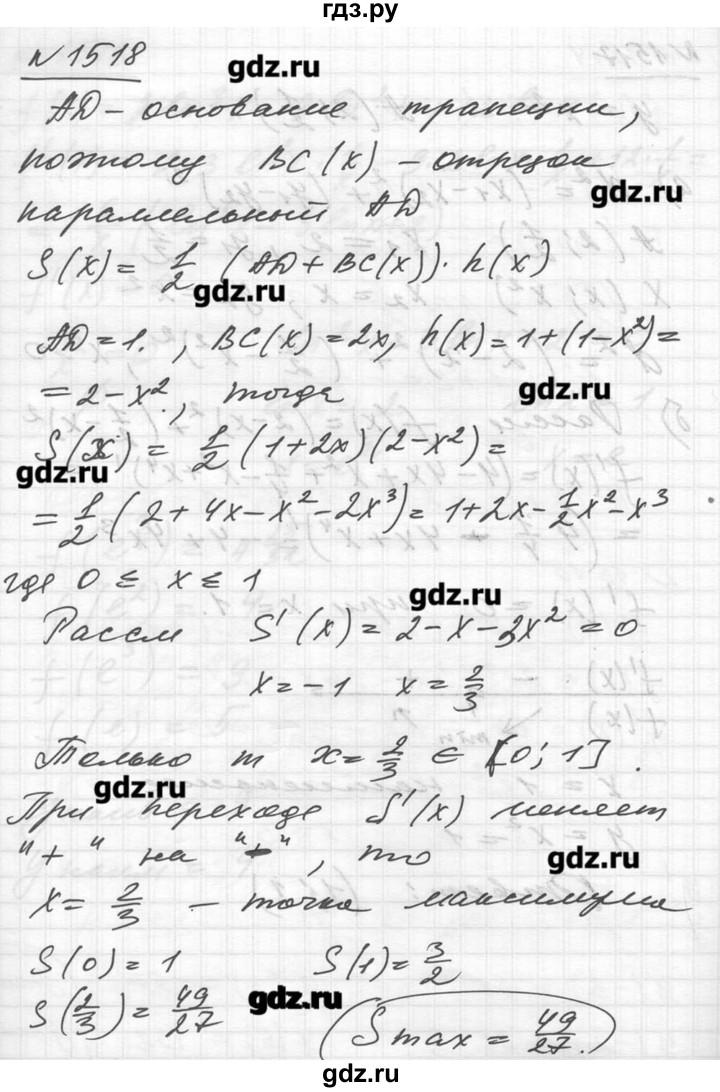 гдз.ру
№1518
gdz.ru
AD - основание трапеции,
поэтому BC(x) - отрезок
gdz.ru
параллельный AD
S(x) = 1/2 (AD + BC(x)) · h(x)
gdz.ru
AD = 1. , BC(x) = 2x, h(x) = 1 + (1 - x²) =
= 2 - x², тогда
gdz.ru
S(x) = 1/2 (1 + 2x)(2 - x²) =
gdz.ru
= 1/2 (2 + 4x - x² - 2x³) = 1 + 2x - 1/2 x² - x³
где 0 ≤ x ≤ 1
gdz.ru
Рассм S'(x) = 2 - x - 3x² = 0
x = -1 x = 2/3
Только т x = 2/3 ∈ [0; 1].
gdz.ru
При переходе S'(x) меняет
"+" на "-", то
gdz.ru
x = 2/3 - точка максимума
S(0) = 1 S(1) = 3/2
S(2/3) = 49/27
gdz.ru
S max = 49/27.
gdz.ru